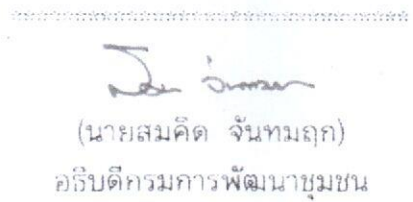 (นายสมคิด จันทมฤก)
อธิบดีกรมการพัฒนาชุมชน